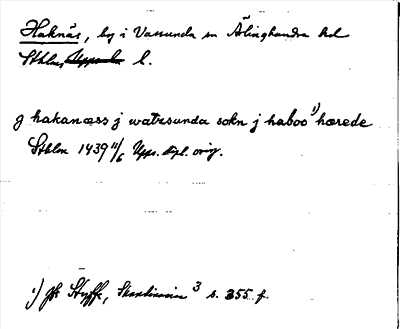 Haknäs, by i Vassunda sn Ärlinghundra hd
Sthlms Uppsala l.
j hakanæss j watzsunda sokn j haboo¹⁾ hærede
Sthlm 1439 11/6 Upps. dipl. orig.
¹⁾ Jfr Styffe, Skandinavien ³ s. 355 f.